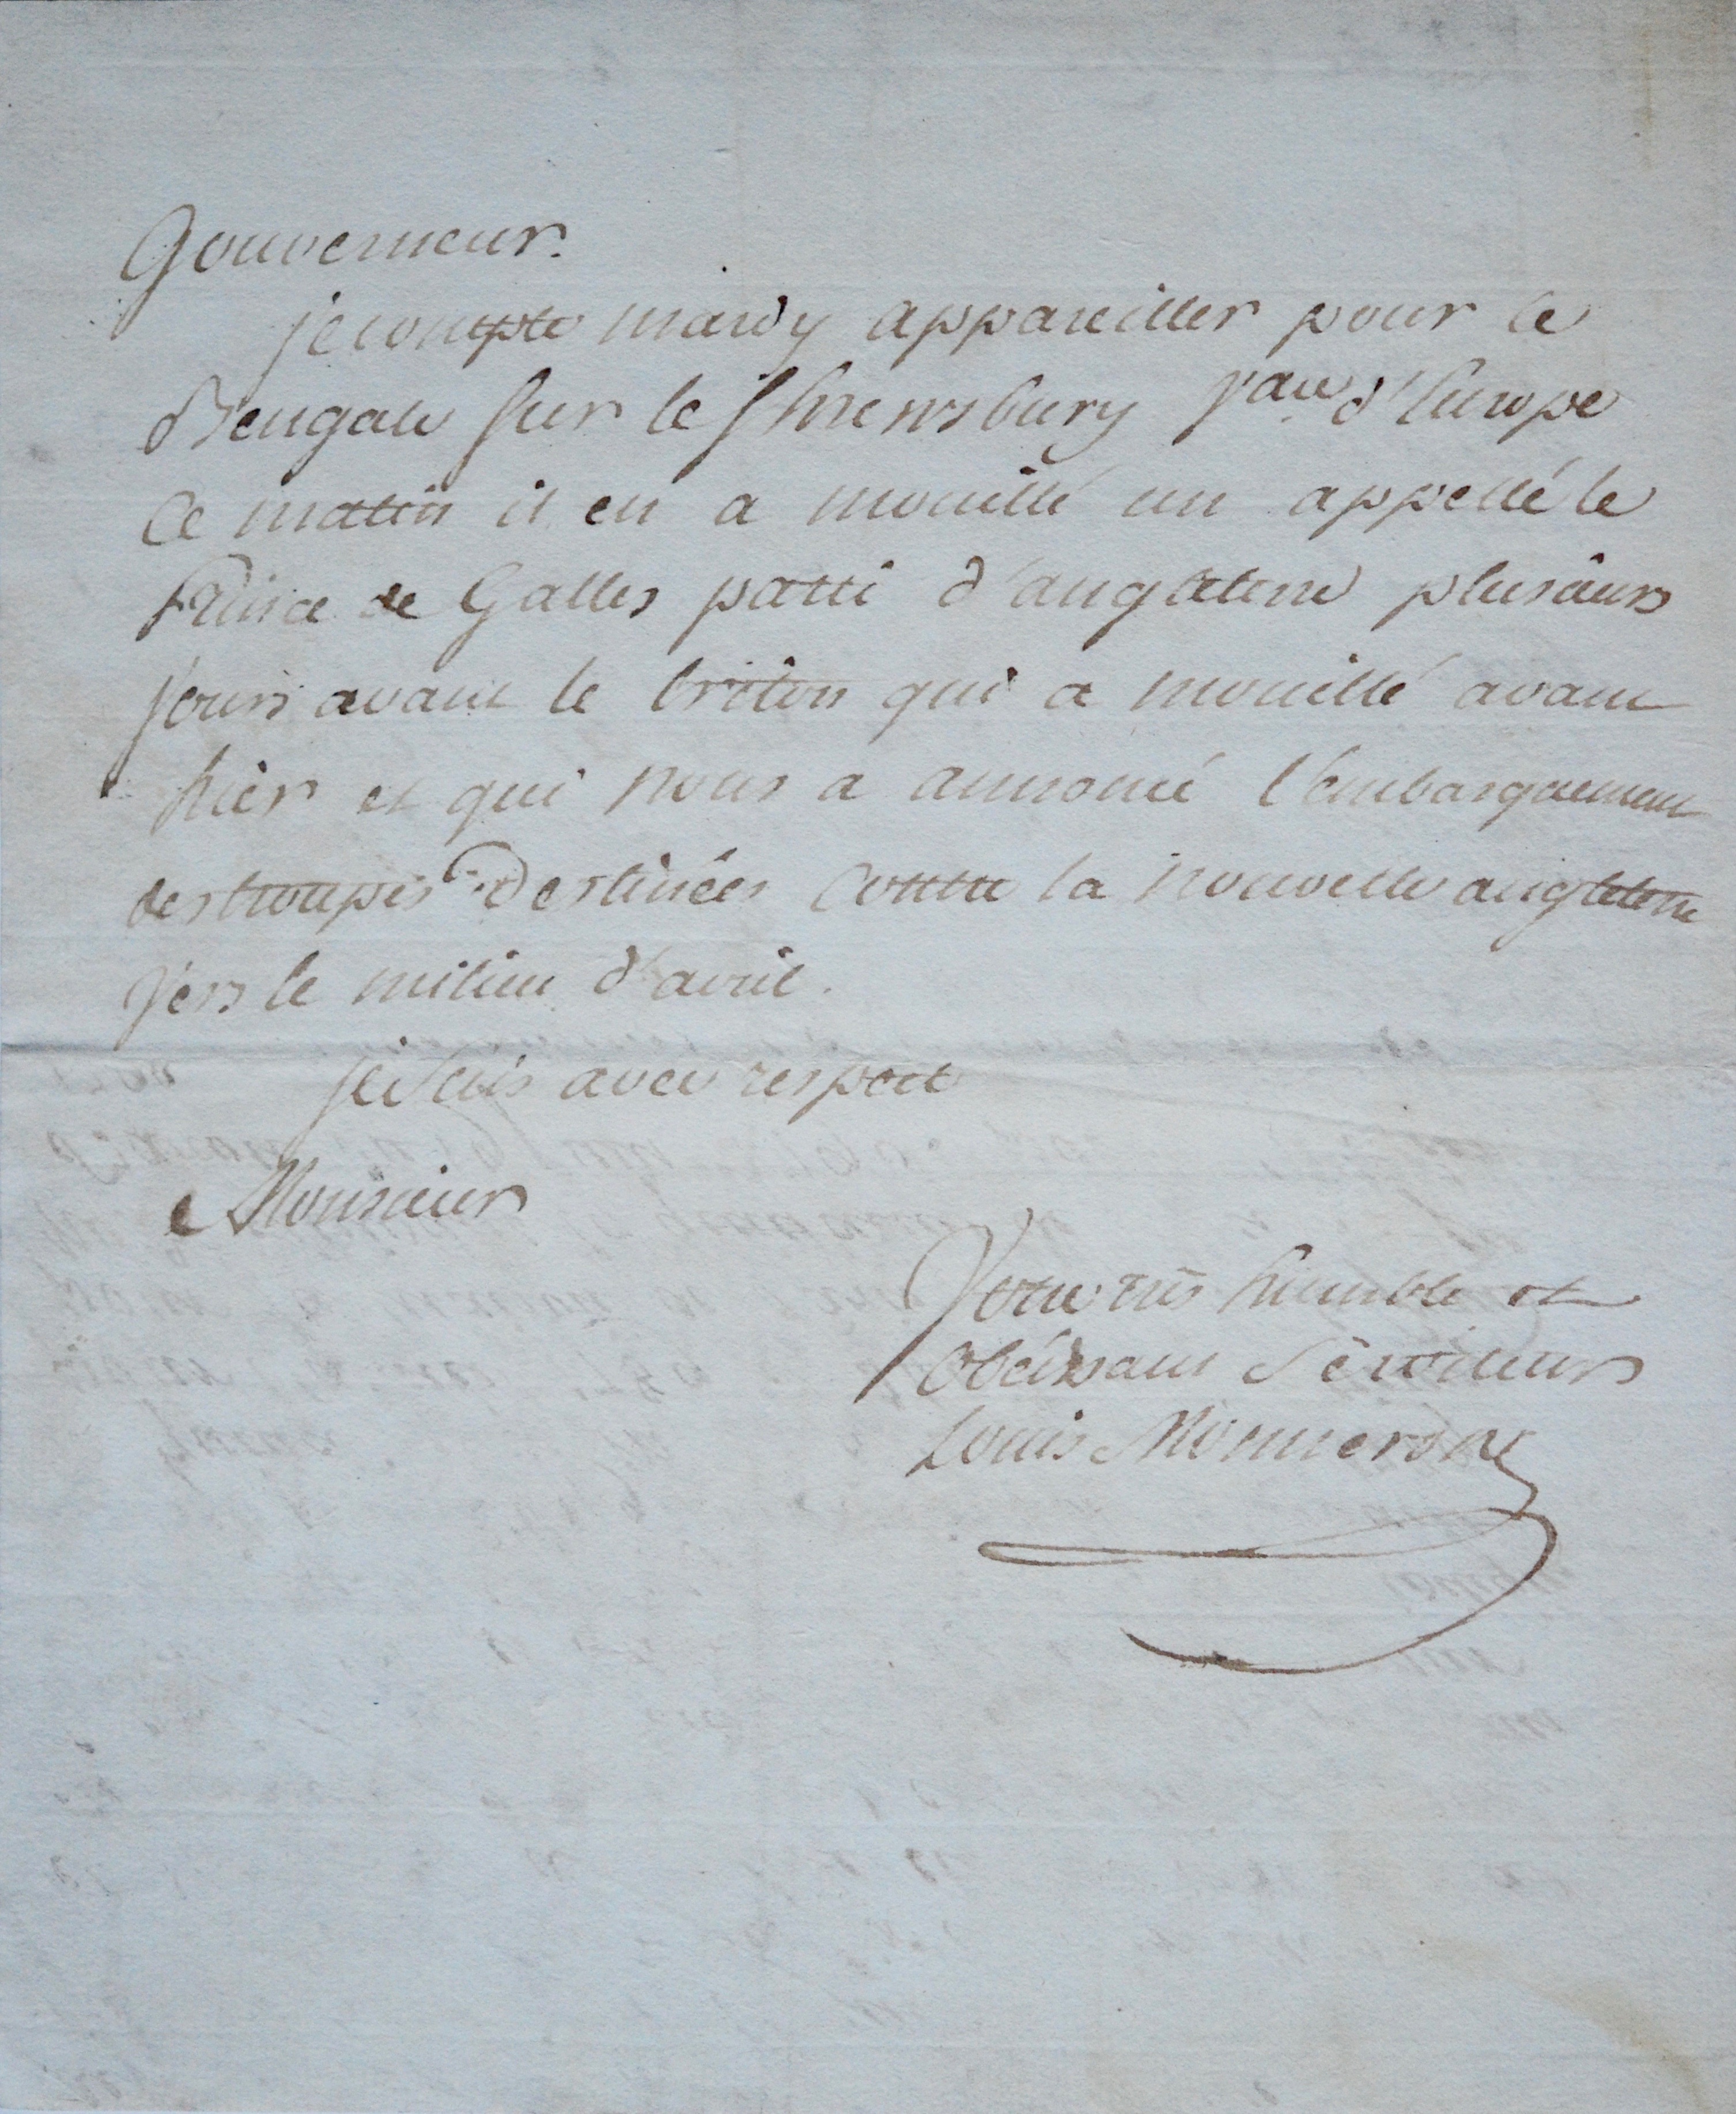 Gouverneur.
je compte mardy appareiller pour le
Bengale sur le Shrewsbury vau. d'Europe
Ce matin il en a mouillé un appellé le
Prince de Galles parti d'angleterre plusieurs
jours avant le briton qui a mouillé avant
hier et qui nous a annoncé l'embarquement
des troupes destinées contre la nouvelle angleterre
vers le milieu d'avril.
je suis avec respect
Monsieur
Votre très humble et
Obéissant Serviteur
Louis Monneron